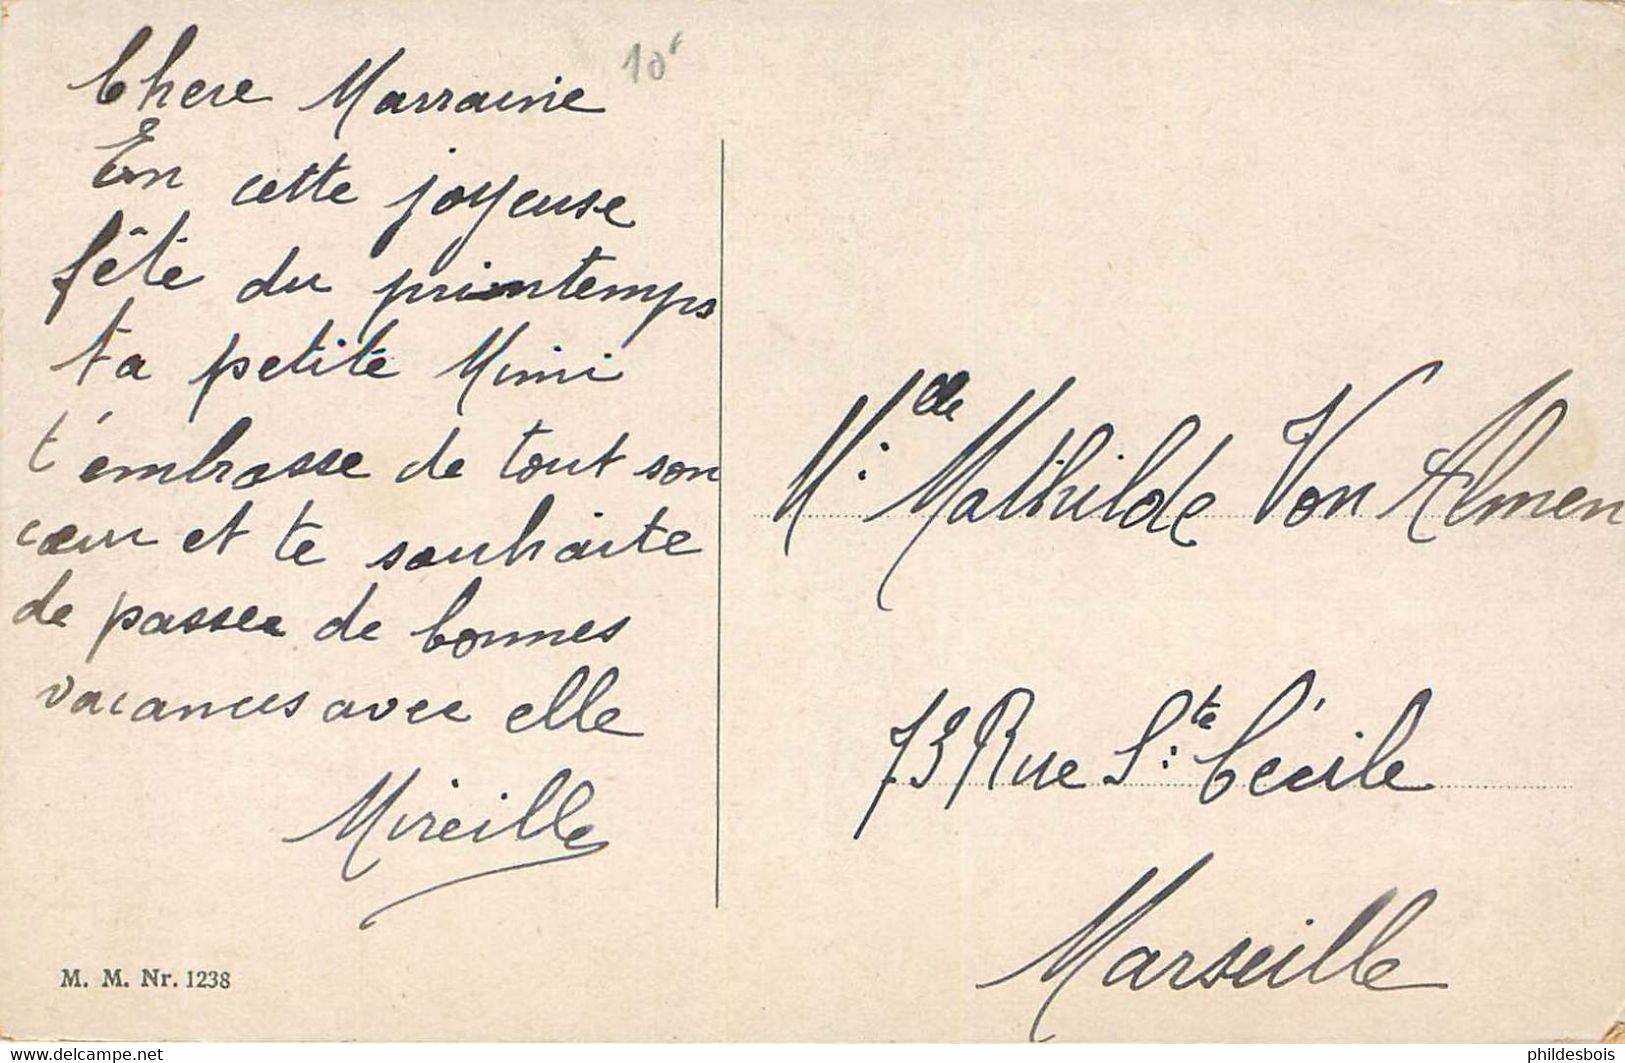 Chere Marraine
10f
En cette joyeuse
fête du printemps
ta petite Mimi
t'embrasse de tout son
cœur et te souhaite
de passer de bonnes
vacances avec elle
Mireille
M. M. Nr. 1238
M.de Mathilde Von Almen
73 Rue S.te Cécile
Marseille
www.delcampe.net
phildesbois